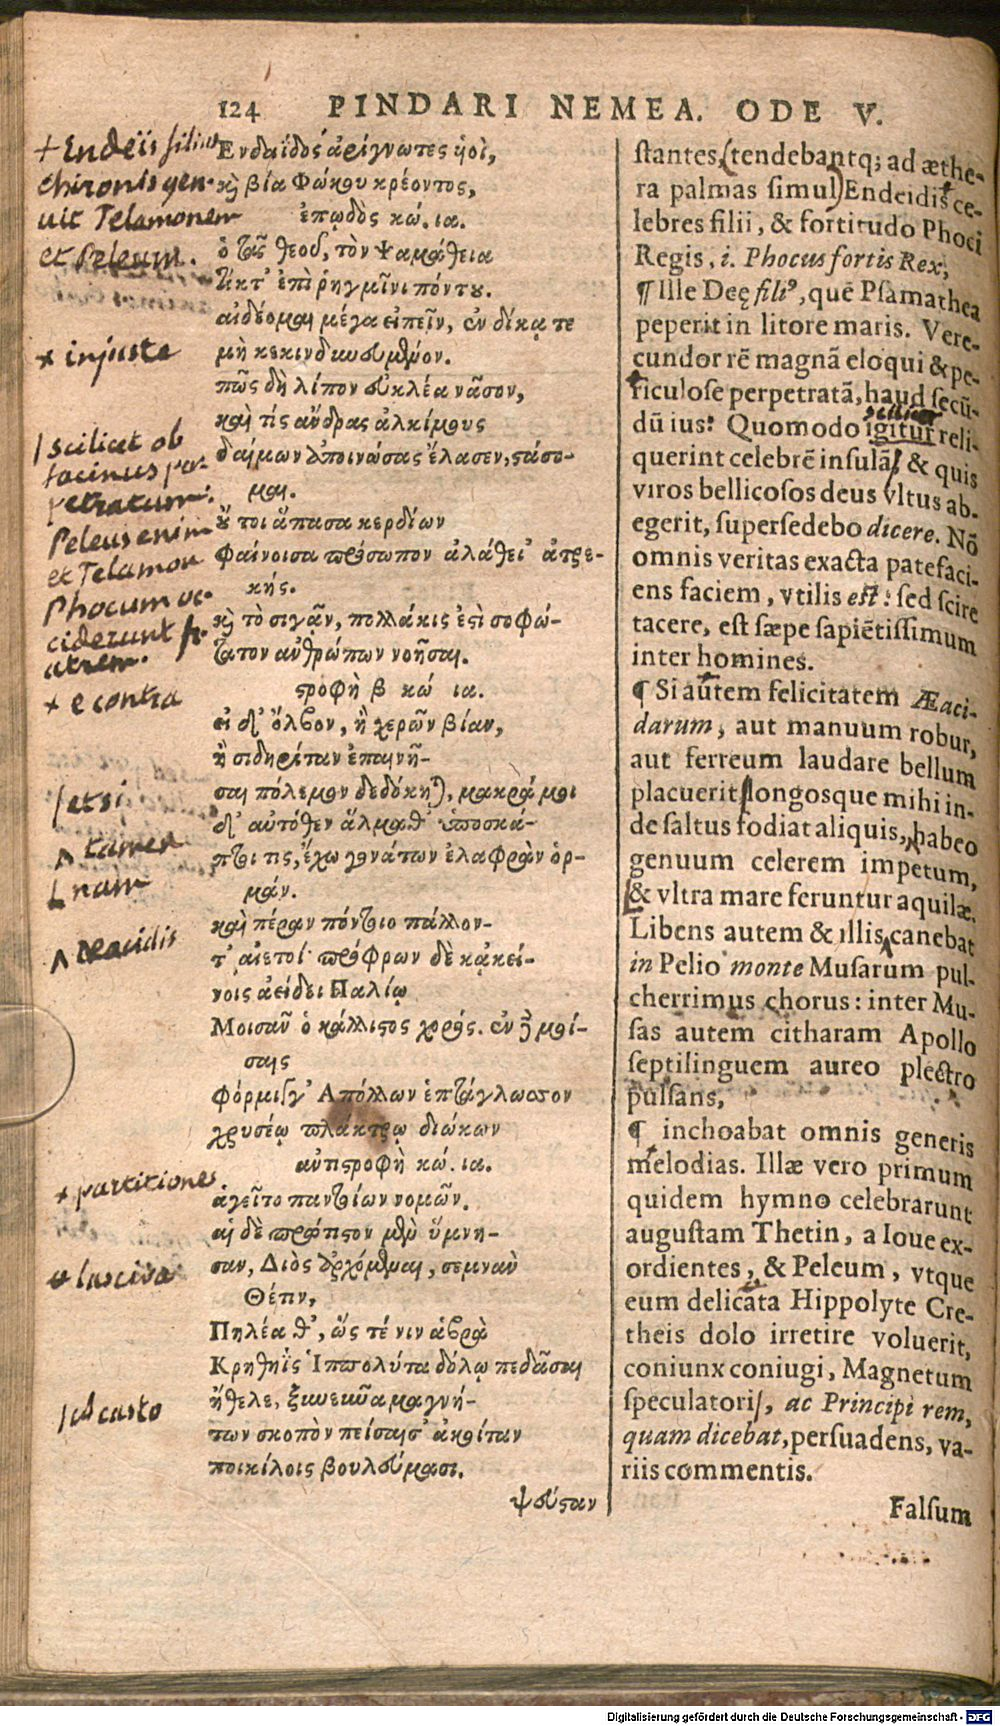 124 PINDARI NEMEA. ODE V.
+ Endeïs filia
chironis gen-
uit Telamonem
et Peleum.
x injuste
/ scilicet ob
facinus per-
petratum:
Peleus enim
et Telamon
Phocum oc-
ciderunt fr-
atrem.
x e contra
/ etsi
^ tamen
L nam
^ Æacidis
x partitiones
lasciva
/ id casto
Ἐνδαΐδος ἀρίγνωτες ὑοὶ,
καὶ βία Φώκου κρέοντος,
ἐπῳδὸς κώ. ια.
ὁ τᾶς θεοῦ, τὸν Ψαμάθεια
τίκτ' ἐπὶ ῥηγμῖνι πόντου.
αἰδέομαι μέγα εἰπεῖν, ἐν δίκᾳ τε
μὴ κεκινδυνευμένον.
πῶς δὴ λίπον εὐκλέα νᾶσον,
καὶ τίς ἄνδρας ἀλκίμους
δαίμων ἀπ' οἰνώσας ἔλασεν, στάσο-
μαι.
οὔ τοι ἅπασα κερδίων
φαίνοισα πρόσωπον ἀλάθει' ἀτρε-
κής.
καὶ τὸ σιγᾶν, πολλάκις ἐστὶ σοφώ-
τατον ἀνθρώπων νοῆσαι.
στροφὴ β κώ ια.
εἰ δ' ὄλβον, ἢ χερῶν βίαν,
ἢ σιδηρίταν ἐπαινῆ-
σαι πόλεμον δεδόκηται, μακρά μοι
δ' αὐτόθεν ἅλμαθ' ὑποσκά-
πτοι τις, ἔχω γονάτων ἐλαφρὰν ὁρ-
μάν.
καὶ πέραν πόντοιο πάλλον-
τ' αἰετοί· πρόφρων δὲ κἀκεί-
νοις ἀείδει Παλίῳ
Μοισᾶν ὁ κάλλιστος χορός. ἐν δὲ μοί-
σαις
φόρμιγγ' Ἀπόλλων ἑπτάγλωσσον
χρυσέῳ πλάκτρῳ διώκων
ἀντιστροφὴ κώ. ια.
ἁγεῖτο παντοίων νομῶν.
αἱ δὲ πρώτιστον μὲν ὕμνη-
σαν, Διὸς ἀρχόμεναι, σεμνὰν
Θέτιν,
Πηλέα θ', ὥς τέ νιν ἁβρὰ
Κρηθηῒς Ἱππολύτα δόλῳ πεδᾶσαι
ἤθελε, ξυνεῦνα μαγνή-
των σκοπὸν πείσαισ' ἀκοίταν
ποικίλοις βουλεύμασι.
ψεύσταν
stantes, (tendebantq; ad æthe-
ra palmas simul) Endeidis ce-
lebres filii, & fortitudo Phoci
Regis, i. Phocus fortis Rex,
¶ Ille Deę filiꝰ, quē Psamathea
peperit in litore maris. Vere-
cundor rē magnā eloqui & pe-
riculose perpetratā, haud secū-
dū ius: Quomodo igitur reli-
querint celebrē insulā, & quis
viros bellicosos deus vltus ab-
egerit, supersedebo dicere. Nō
omnis veritas exacta patefaci-
ens faciem, vtilis est: sed scire
tacere, est sæpe sapiētissimum
inter homines.
¶ Si autem felicitatem Æaci-
darum, aut manuum robur,
aut ferreum laudare bellum
placuerit, longosque mihi in-
de saltus fodiat aliquis, habeo
genuum celerem impetum,
& vltra mare feruntur aquilæ.
Libens autem & illis canebat
in Pelio monte Musarum pul-
cherrimus chorus: inter Mu-
sas autem citharam Apollo
septilinguem aureo plectro
pulsans,
¶ inchoabat omnis generis
melodias. Illæ vero primum
quidem hymno celebrarunt
augustam Thetin, a Ioue ex-
ordientes, & Peleum, vtque
eum delicata Hippolyte Cre-
theis dolo irretire voluerit,
coniunx coniugi, Magnetum
speculatori, ac Principi rem,
quam dicebat, persuadens, va-
riis commentis.
Falsum
Digitalisierung gefördert durch die Deutsche Forschungsgemeinschaft - DFG